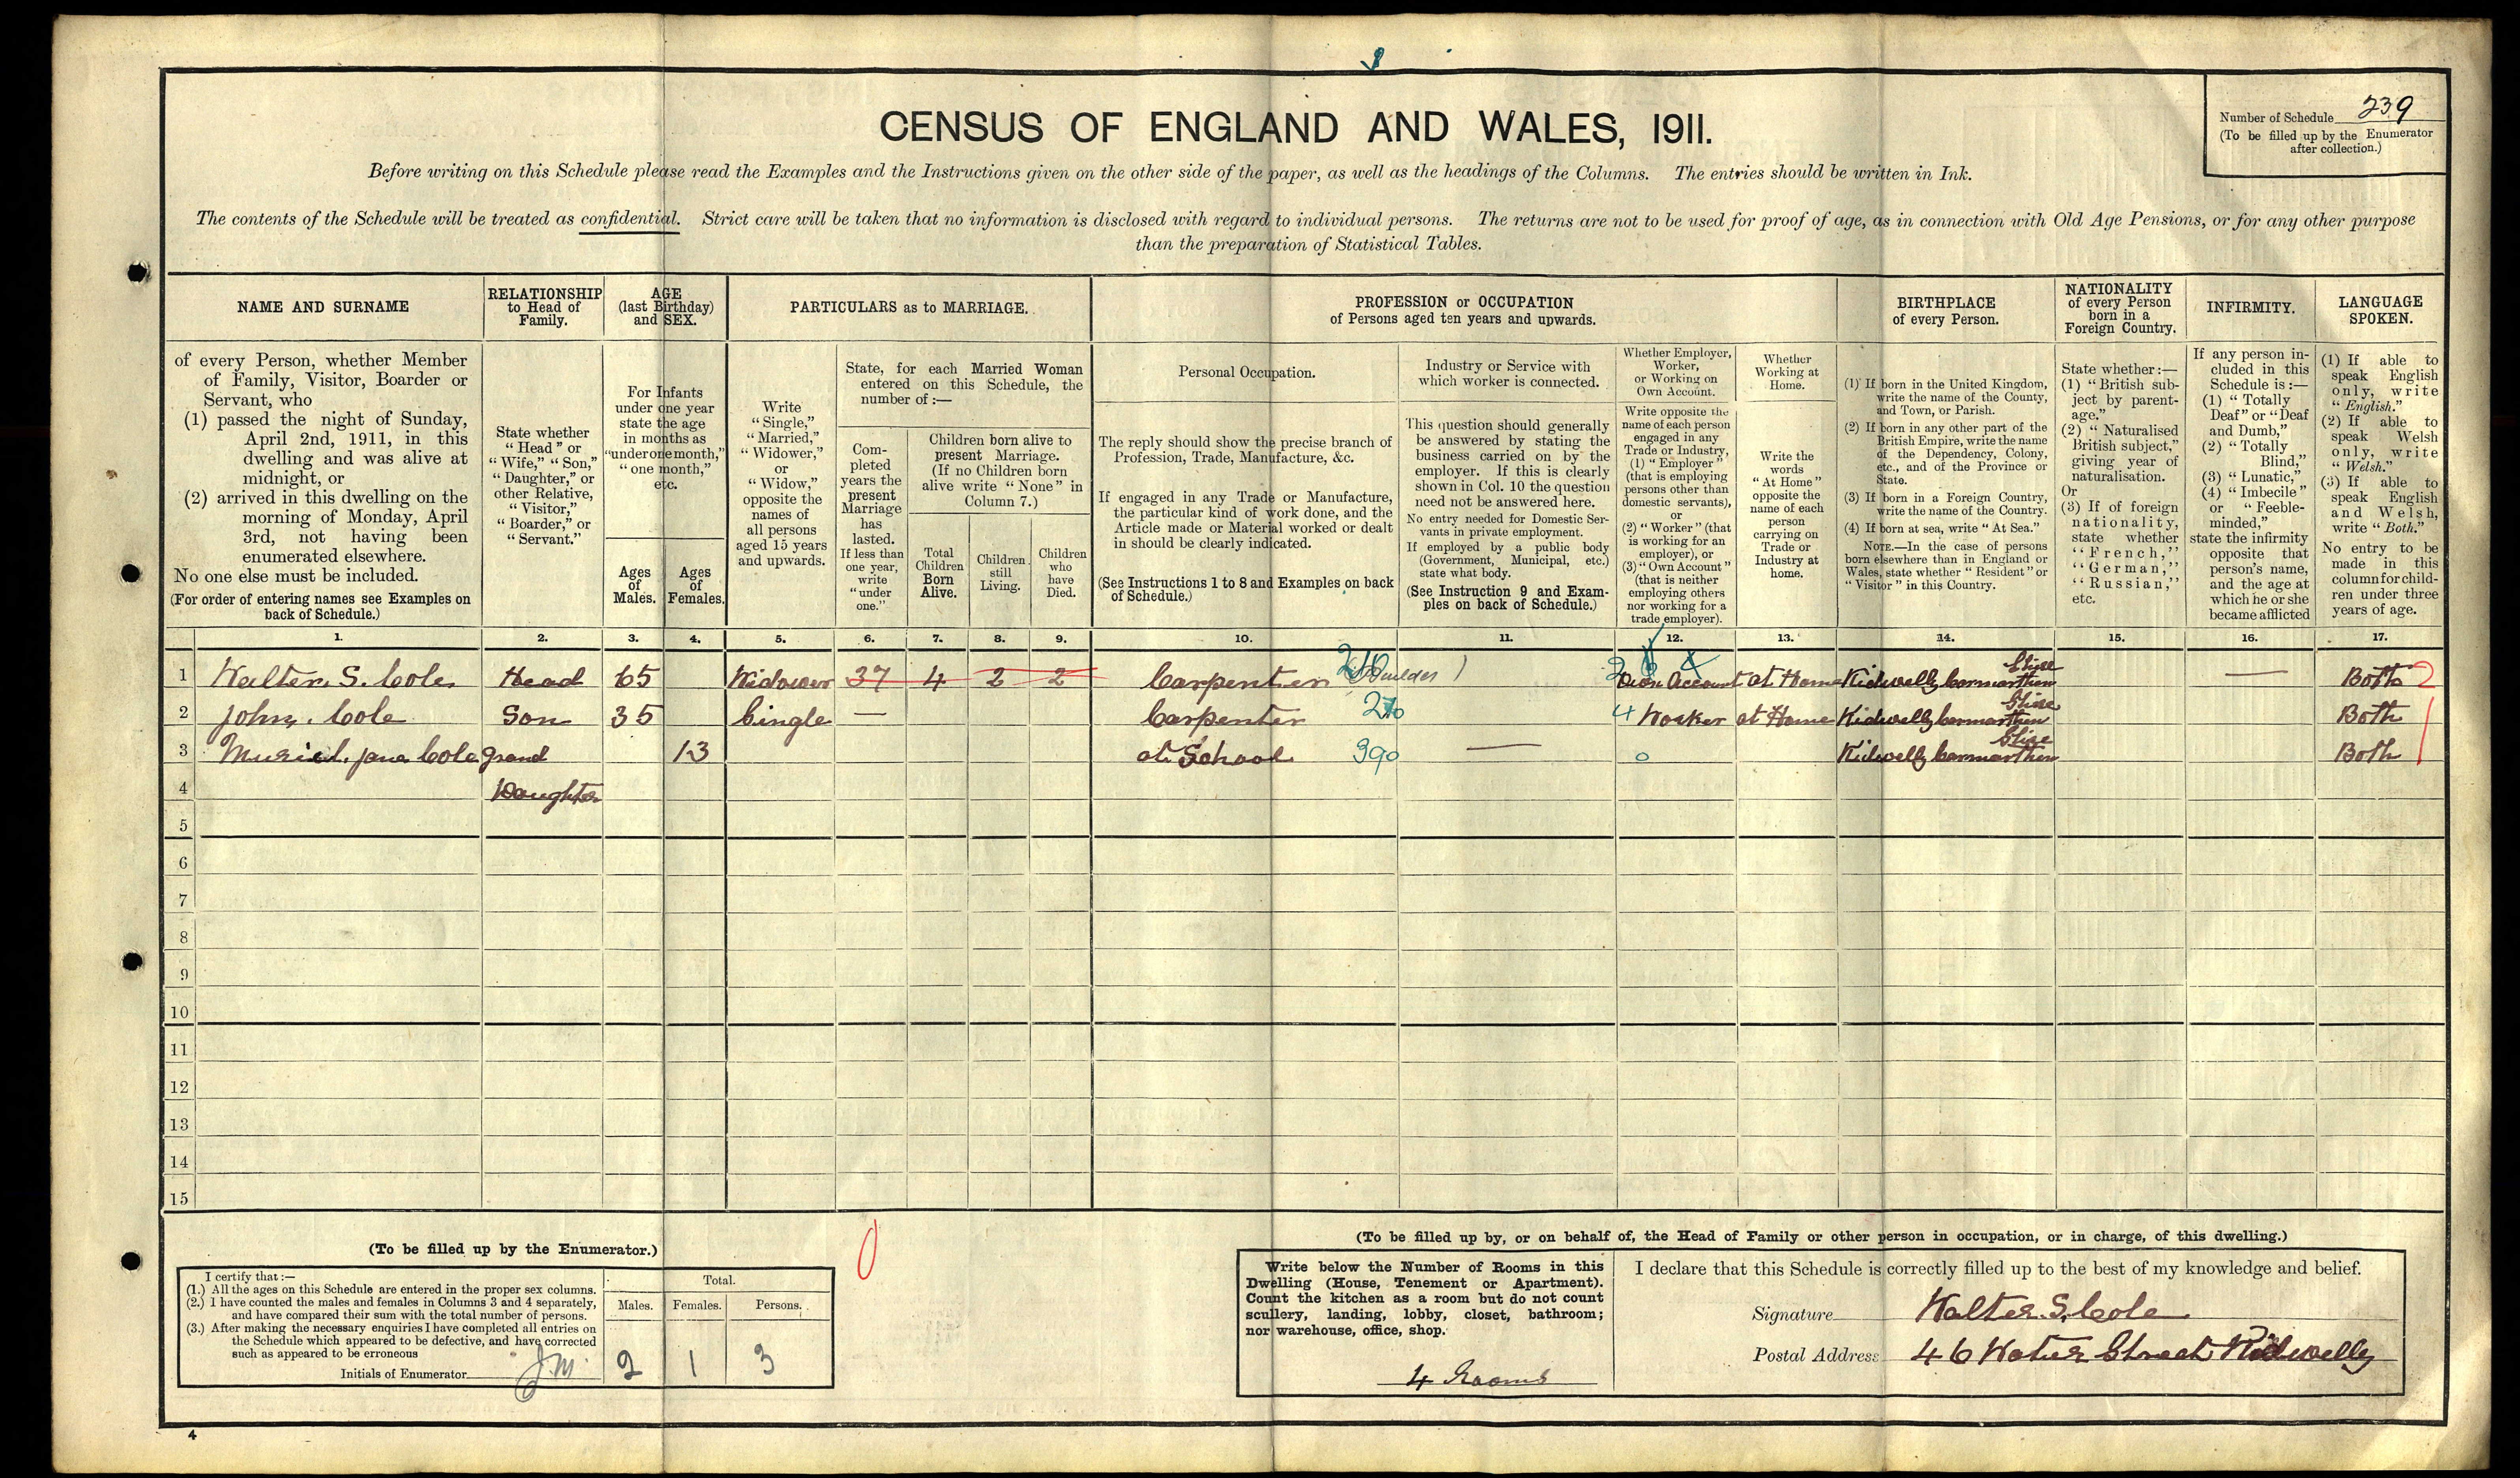 CENSUS OF ENGLAND AND WALES, 1911.
Number of Schedule 239
(To be filled up by the Enumerator
after collection.)
Before writing on this Schedule please read the Examples and the Instructions given on the other side of the paper, as well as the headings of the Columns. The entries should be written in Ink.
The contents of the Schedule will be treated as confidential. Strict care will be taken that no information is disclosed with regard to individual persons. The returns are not to be used for proof of age, as in connection with Old Age Pensions, or for any other purpose
than the preparation of Statistical Tables.
NAME AND SURNAME
of every Person, whether Member
of Family, Visitor, Boarder or
Servant, who
(1) passed the night of Sunday,
April 2nd, 1911, in this
dwelling and was alive at
midnight, or
(2) arrived in this dwelling on the
morning of Monday, April
3rd, not having been
enumerated elsewhere.
No one else must be included.
(For order of entering names see Examples on
back of Schedule.)
RELATIONSHIP
to Head of
Family.
State whether
"Head" or
"Wife," "Son,"
"Daughter," or
other Relative,
"Visitor,"
"Boarder," or
"Servant."
AGE
(last Birthday)
and SEX.
For Infants
under one year
state the age
in months as
"under one month,"
"one month,"
etc.
Ages
of
Males.
Ages
of
Females.
PARTICULARS as to MARRIAGE.
Write
"Single,"
"Married,"
"Widower,"
or
"Widow,"
opposite the
names of
all persons
aged 15 years
and upwards.
State, for each Married Woman
entered on this Schedule, the
number of :—
Com-
pleted
years the
present
Marriage
has
lasted.
If less than
one year,
write
"under
one."
Children born alive to
present Marriage.
(If no Children born
alive write "None" in
Column 7.)
Total
Children
Born
Alive.
Children
still
Living.
Children
who
have
Died.
PROFESSION or OCCUPATION
of Persons aged ten years and upwards.
Personal Occupation.
The reply should show the precise branch of
Profession, Trade, Manufacture, &c.
If engaged in any Trade or Manufacture,
the particular kind of work done, and the
Article made or Material worked or dealt
in should be clearly indicated.
(See Instructions 1 to 8 and Examples on back
of Schedule.)
Industry or Service with
which worker is connected.
This question should generally
be answered by stating the
business carried on by the
employer. If this is clearly
shown in Col. 10 the question
need not be answered here.
No entry needed for Domestic Ser-
vants in private employment.
If employed by a public body
(Government, Municipal, etc.)
state what body.
(See Instruction 9 and Exam-
ples on back of Schedule.)
Whether Employer,
Worker,
or Working on
Own Account.
Write opposite the
name of each person
engaged in any
Trade or Industry,
(1) "Employer"
(that is employing
persons other than
domestic servants),
or
(2) "Worker" (that
is working for an
employer), or
(3) "Own Account"
(that is neither
employing others
nor working for a
trade employer).
Whether
Working at
Home.
Write the
words
"At Home"
opposite the
name of each
person
carrying on
Trade or
Industry at
home.
BIRTHPLACE
of every Person.
(1) If born in the United Kingdom,
write the name of the County,
and Town, or Parish.
(2) If born in any other part of the
British Empire, write the name
of the Dependency, Colony,
etc., and of the Province or
State.
(3) If born in a Foreign Country,
write the name of the Country.
(4) If born at sea, write "At Sea."
NOTE.—In the case of persons
born elsewhere than in England or
Wales, state whether "Resident" or
"Visitor" in this Country.
NATIONALITY
of every Person
born in a
Foreign Country.
State whether :—
(1) "British sub-
ject by parent-
age."
(2) "Naturalised
British subject,"
giving year of
naturalisation.
Or
(3) If of foreign
nationality,
state whether
"French,"
"German,"
"Russian,"
etc.
INFIRMITY.
If any person in-
cluded in this
Schedule is :—
(1) "Totally
Deaf" or "Deaf
and Dumb,"
(2) "Totally
Blind,"
(3) "Lunatic,"
(4) "Imbecile"
or "Feeble-
minded,"
state the infirmity
opposite that
person's name,
and the age at
which he or she
became afflicted
LANGUAGE
SPOKEN.
(1) If able to
speak English
only, write
"English."
(2) If able to
speak Welsh
only, write
"Welsh."
(3) If able to
speak English
and Welsh,
write "Both."
No entry to be
made in this
column for child-
ren under three
years of age.
1. 2. 3. 4. 5. 6. 7. 8. 9. 10. 11. 12. 13. 14. 15. 16. 17.
1 Walter. S. Cole Head 65 Widower 37 4 2 2 Carpenter (Builder) Own Account at Home Kidwelly Carmarthen Shire — Both 2
2 John. Cole Son 35 Single — Carpenter 270 4 Worker at Home Kidwelly Carmarthen Shire Both 1
3 Muriel. Jane Cole Grand 13 at School 390 — 0 Kidwelly Carmarthen Shire Both
4 Daughter
5
6
7
8
9
10
11
12
13
14
15
(To be filled up by the Enumerator.)
I certify that :—
(1.) All the ages on this Schedule are entered in the proper sex columns.
(2.) I have counted the males and females in Columns 3 and 4 separately,
and have compared their sum with the total number of persons.
(3.) After making the necessary enquiries I have completed all entries on
the Schedule which appeared to be defective, and have corrected
such as appeared to be erroneous
Initials of Enumerator JM
Total.
Males. Females. Persons.
2 1 3
0
(To be filled up by, or on behalf of, the Head of Family or other person in occupation, or in charge, of this dwelling.)
Write below the Number of Rooms in this
Dwelling (House, Tenement or Apartment).
Count the kitchen as a room but do not count
scullery, landing, lobby, closet, bathroom;
nor warehouse, office, shop.
4 Rooms
I declare that this Schedule is correctly filled up to the best of my knowledge and belief.
Signature Walter. S. Cole
Postal Address 46 Water Street Kidwelly
4